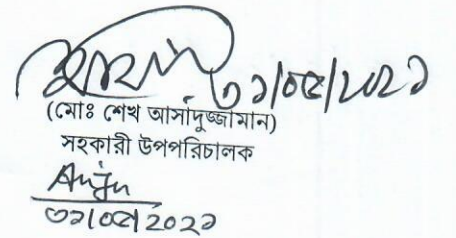 ৩১/০৫/২০২১
(মোঃ শেখ আসাদুজ্জামান)
সহকারী উপপরিচালক
Anjn
৩১/০৫/২০২১